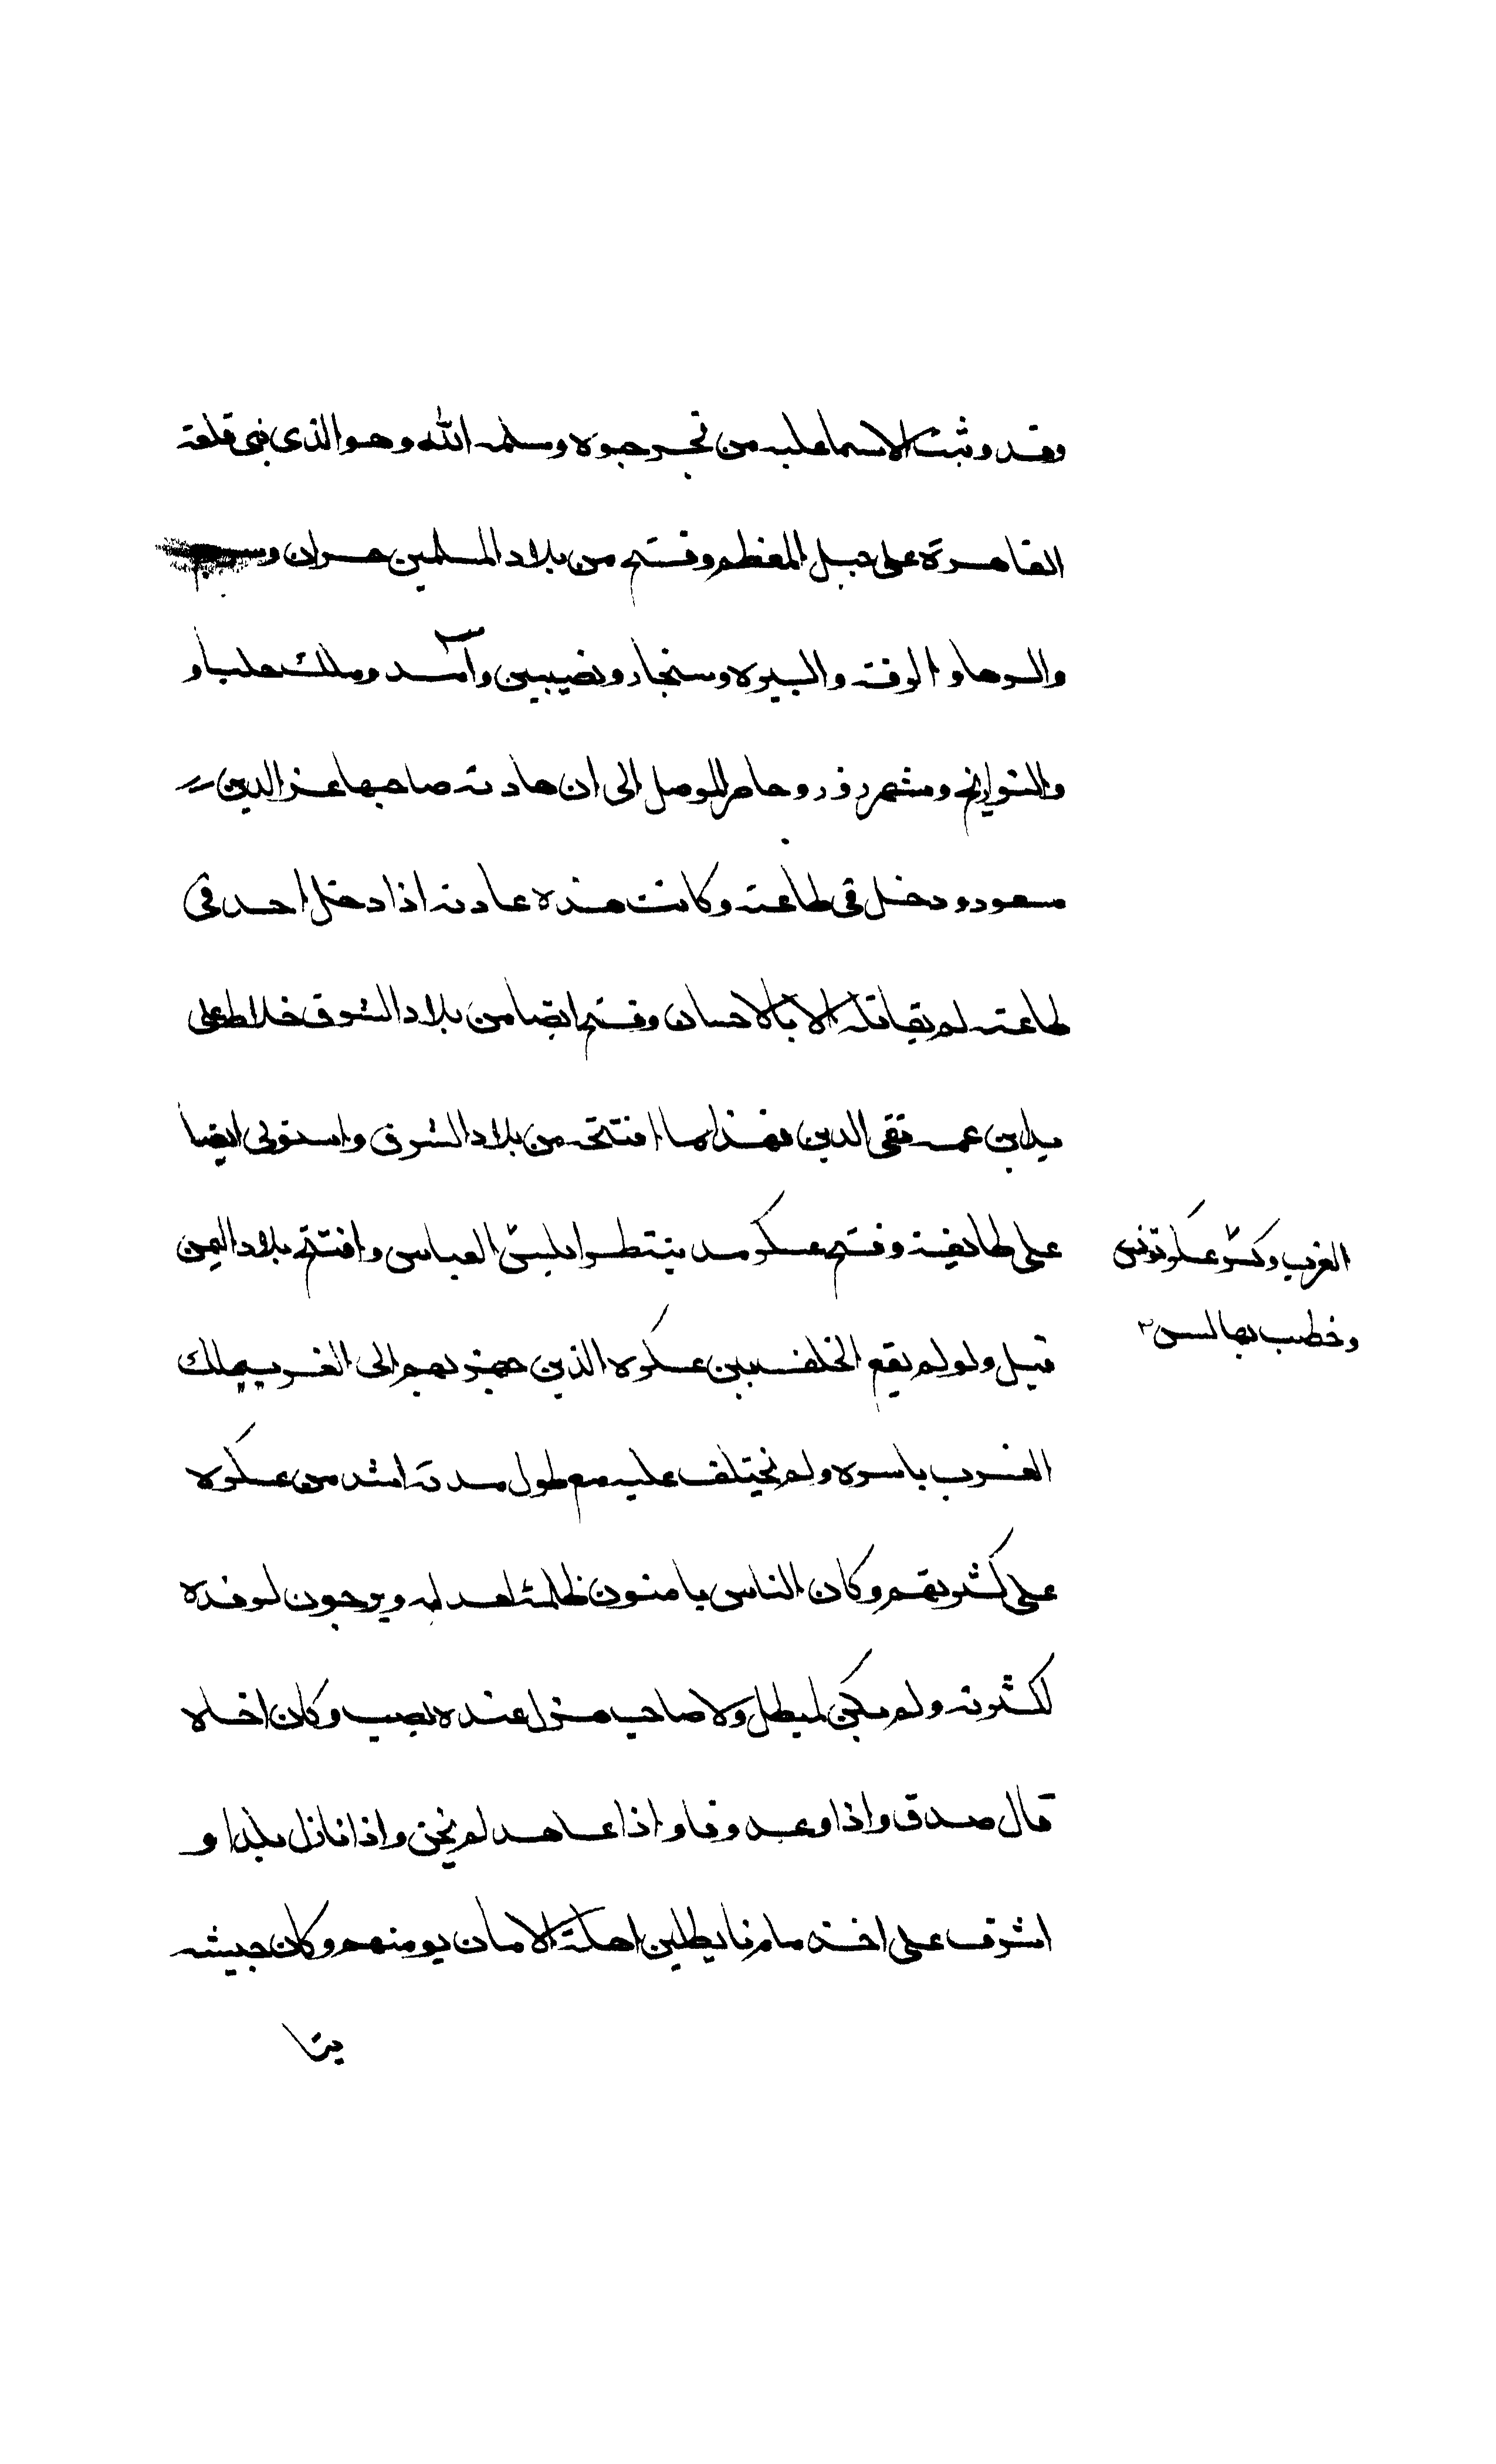 وقد وثبت الاسماعليه من نجر جوه وسلمه الله وهو الذى بنى قلعة
القاهرة على جبل المغطم وفتح من بلاد المسلمين حران وسروج
والرها و الرقة والبيره وسنجار ونصيبين وآمد وملك حلب او
والتواريخ ومشهرزور وحاصر الموصل الى ان هادنه صاحبها عز الدين
مسعود ودخل فى طاعته وكانت هذه عادته اذا دخل احد فى
طاعته لم يقاتله الا بالاحسان وفتح ايضا من بلاد الشرق خلاط على
يد ابن عمه تقى الدين فهذا ما افتتحه من بلاد الشرق واستولى ايضا
على طايفة وفتح عسكره العباسى وافتتح بلاد اليمن
الغرب وكسر عسكر تونس
وخطب بها لبنى
قيل ولو لم يقع الخلف بين عسكره الذين جهزهم الى الغرب يملك
الغرب باسره ولم يختلف عليه مع طول مدته احد من عسكره
على كثرتهم وكان الناس يامنون ظلمه لعدله ويرجون لرفده
لكثرته ولم يكن لمبطل ولا صاحب هزل عنده نصيب وكان اذا
قال صدق واذا وعد وفا واذا عاهد لم يخن واذا نازل بلدا و
اشرف على اخذه الامان يومنهم وكان جيشه